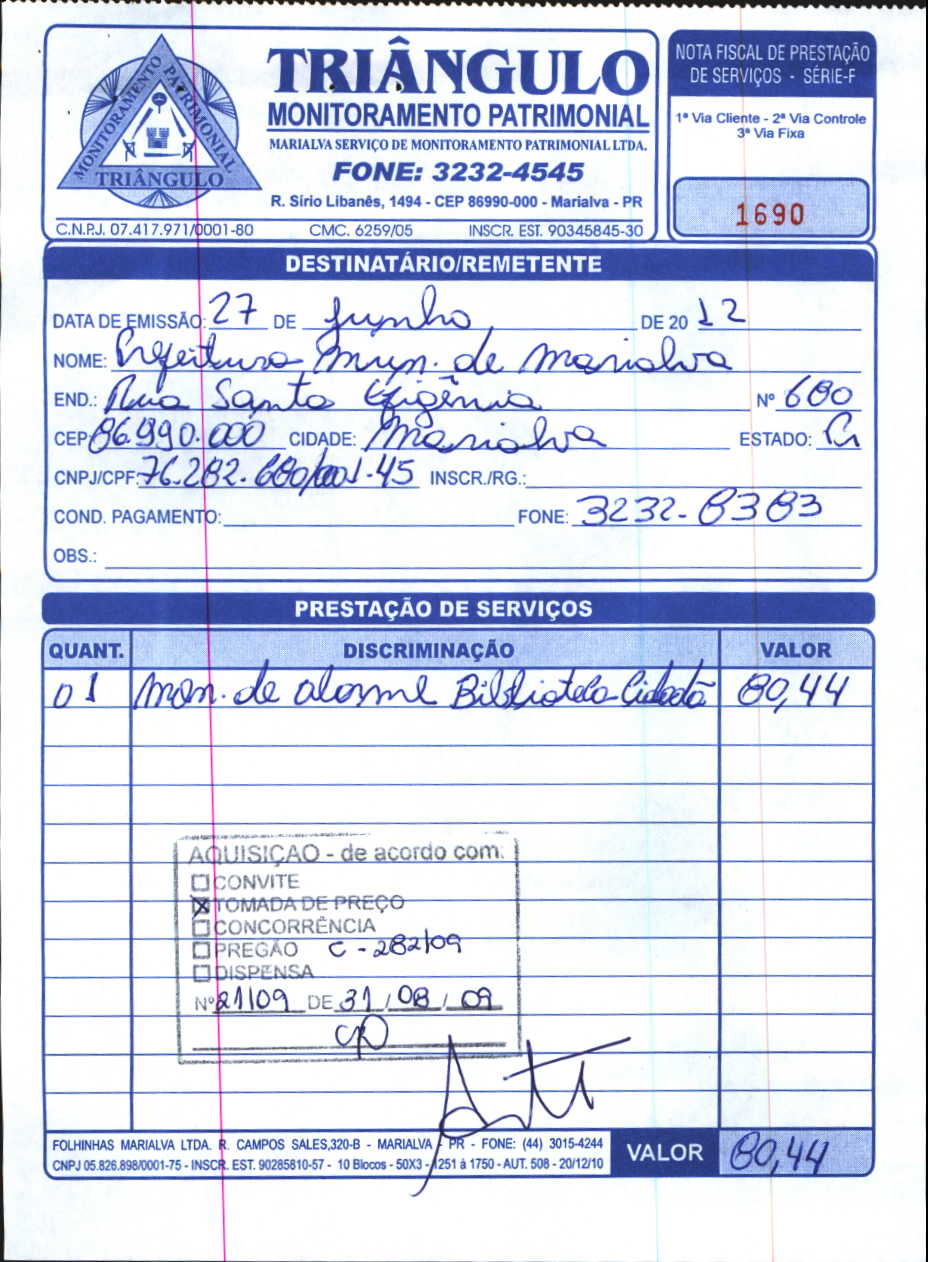 TRIÂNGULO
MONITORAMENTO PATRIMONIAL
MARIALVA SERVIÇO DE MONITORAMENTO PATRIMONIAL LTDA.
FONE: 3232-4545
R. Sírio Libanês, 1494 - CEP 86990-000 - Marialva - PR
MONITORAMENTO PATRIMONIAL
TRIÂNGULO
C.N.P.J. 07.417.971/0001-80 CMC. 6259/05 INSCR. EST. 90345845-30
NOTA FISCAL DE PRESTAÇÃO
DE SERVIÇOS - SÉRIE-F
1ª Via Cliente - 2ª Via Controle
3ª Via Fixa
1690
DESTINATÁRIO/REMETENTE
DATA DE EMISSÃO: 27 DE Junho DE 20 12
NOME: Prefeitura Mun. de Marialva
END.: Rua Santa Efigênia Nº 680
CEP 86.990.000 CIDADE: Marialva ESTADO: Pr
CNPJ/CPF: 76.282.680/0001-45 INSCR./RG.:
COND. PAGAMENTO: FONE: 3232-8383
OBS.:
PRESTAÇÃO DE SERVIÇOS
QUANT. DISCRIMINAÇÃO VALOR
01 Mon. de alarme Biblioteca Cidadã 80,44
AQUISIÇAO - de acordo com:
CONVITE
TOMADA DE PREÇO
CONCORRÊNCIA
PREGÃO C - 282/09
DISPENSA
Nº 21/09 DE 31/08/09
FOLHINHAS MARIALVA LTDA. R. CAMPOS SALES,320-B - MARIALVA - PR - FONE: (44) 3015-4244
CNPJ 05.826.898/0001-75 - INSCR. EST. 90285810-57 - 10 Blocos - 50X3 - 1251 à 1750 - AUT. 508 - 20/12/10
VALOR 80,44